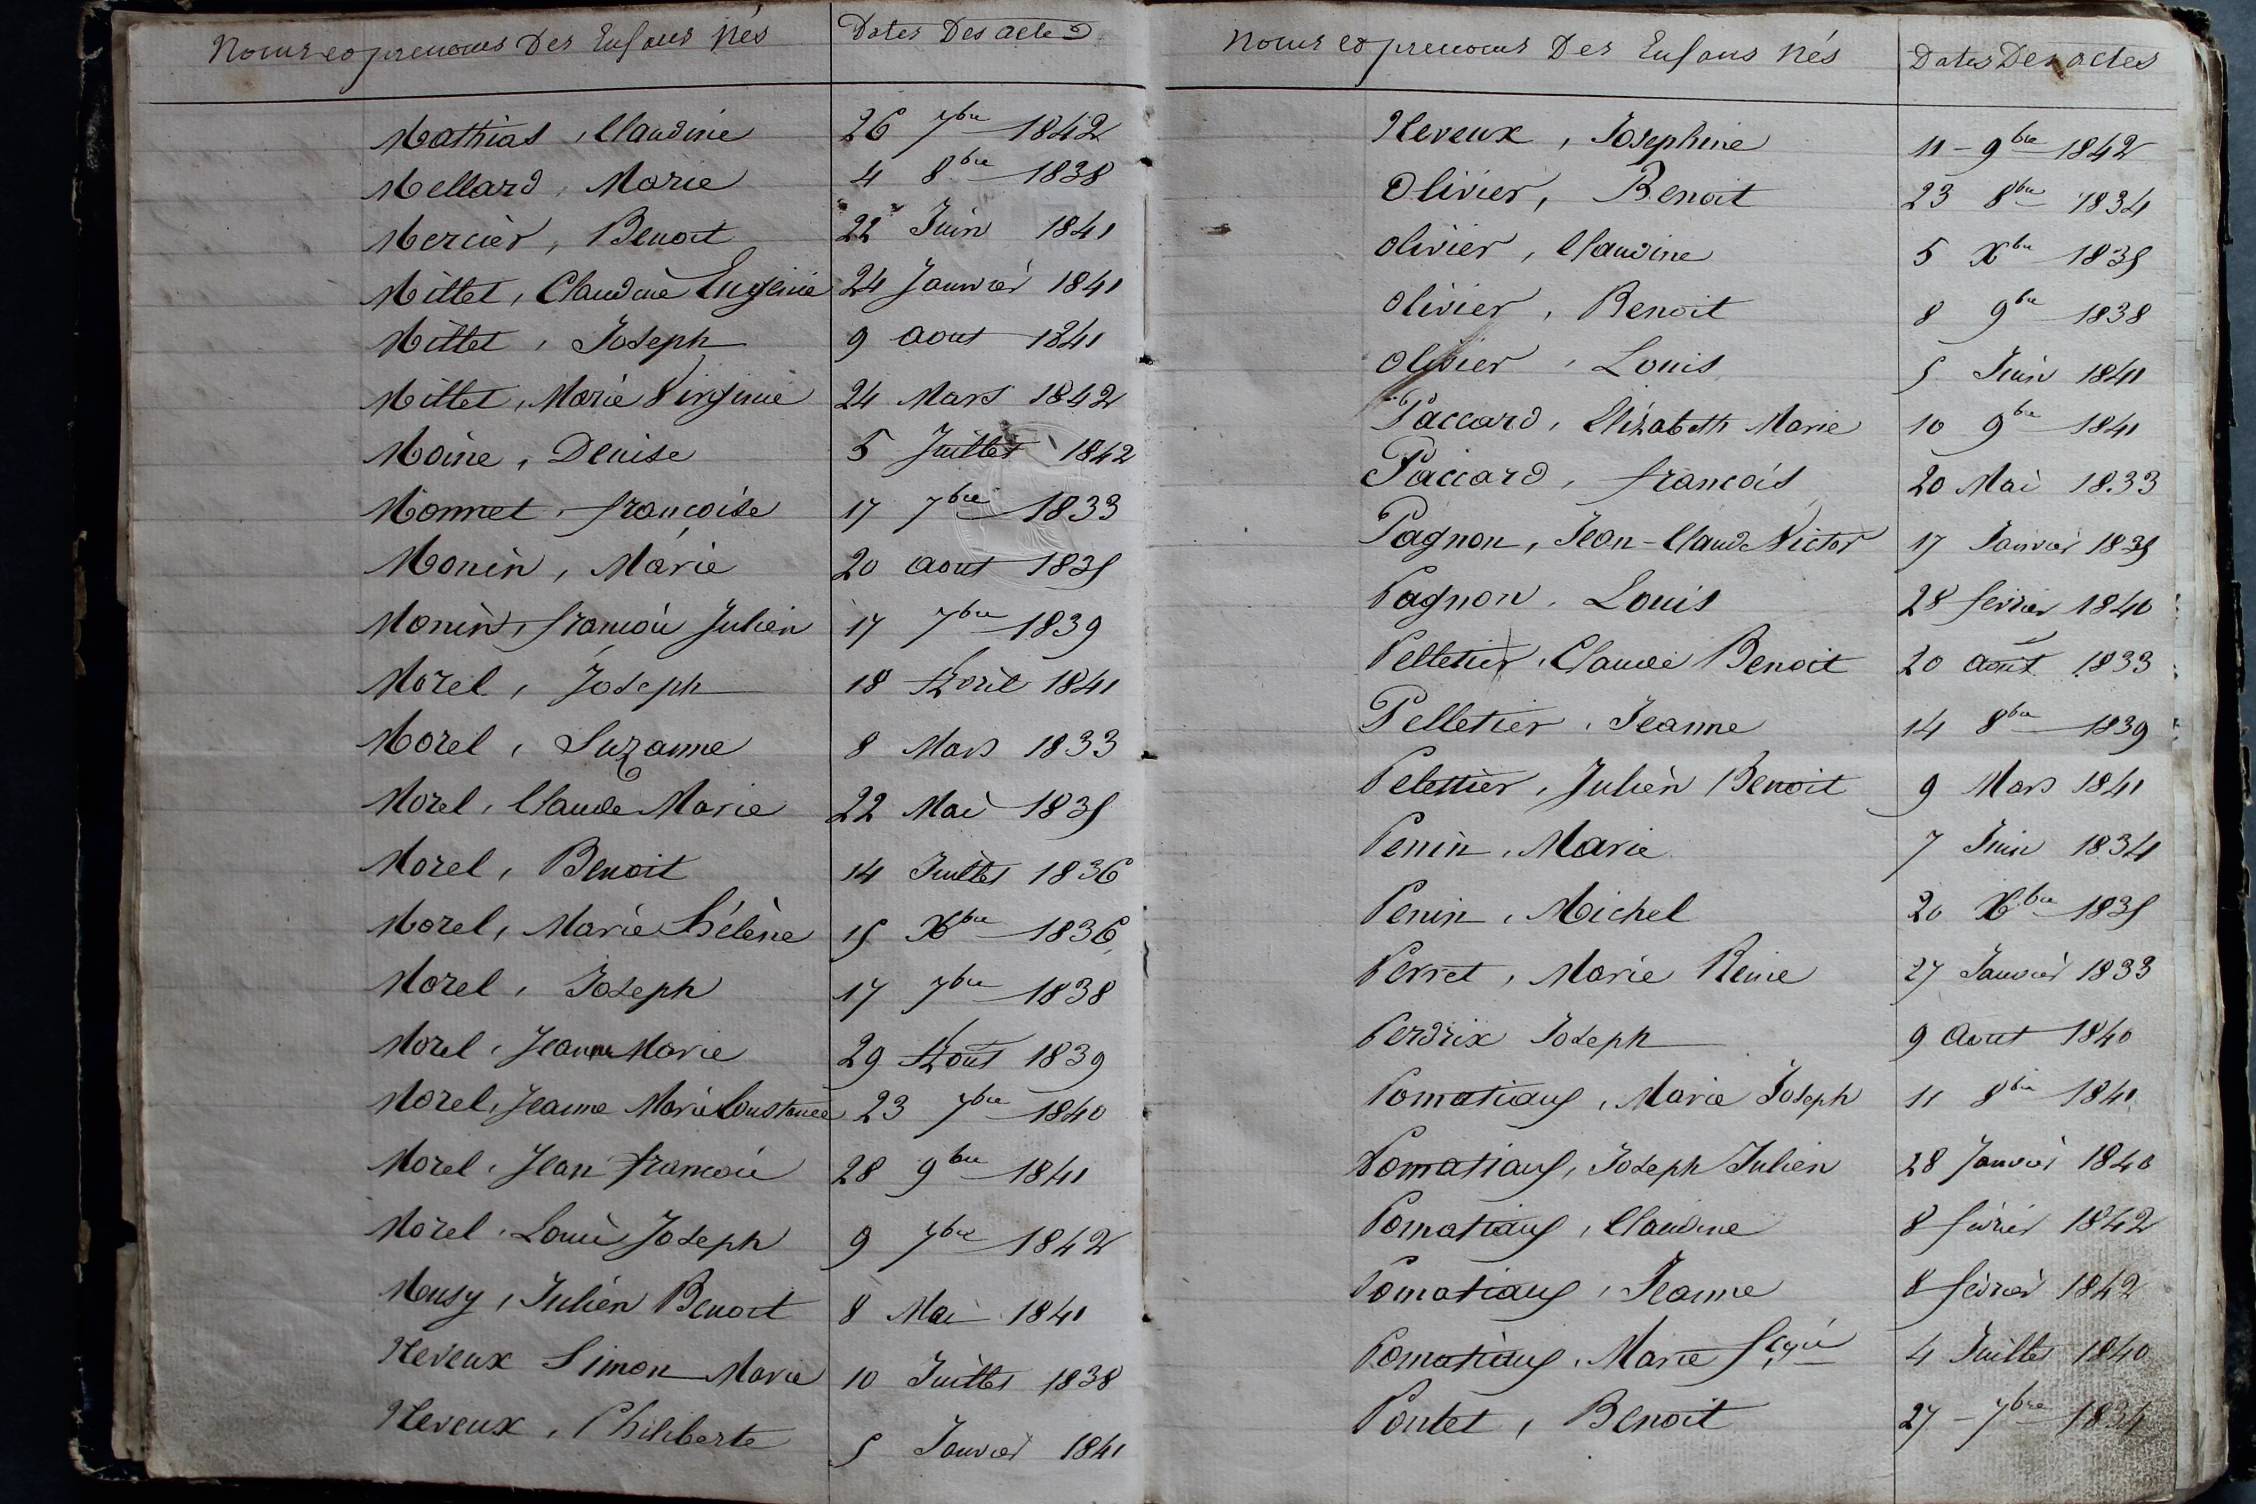 Noms et prenoms Des Enfans Nés Dates Des actes
Mathias, Claudine 26 7bre 1842
Mellard, Marie 4 8bre 1838
Mercier, Benoit 22 Juin 1841
Millet, Claudine Eugénie 24 Janvier 1841
Millet, Joseph 9 aout 1841
Millet, Marie Virginie 24 Mars 1842
Moine, Denise 5 Juillet 1842
Monnet, françoise 17 7bre 1833
Monin, Marie 20 aout 1835
Monin, françois Julien 17 7bre 1839
Morel, Joseph 18 Avril 1841
Morel, Suzanne 8 Mars 1833
Morel, Claude Marie 22 Mai 1835
Morel, Benoit 14 Juillet 1836
Morel, Marie hélène 15 Xbre 1836
Morel, Joseph 17 7bre 1838
Morel, Jeanne Marie 29 Aout 1839
Morel, Jeanne Marie Constance 23 7bre 1840
Morel, Jean françois 28 9bre 1841
Morel, Louis Joseph 9 7bre 1842
Musy, Julien Benoit 8 Mai 1841
Neveux Simon Marie 10 Juillet 1838
Neveux, Philiberte 5 Janvier 1841
Noms et prenoms Des Enfans Nés Dates Des actes
Neveux, Josephine 11 - 9bre 1842
Olivier, Benoit 23 8bre 1834
Olivier, Claudine 5 Xbre 1835
Olivier, Benoit 8 9bre 1838
Olivier, Louis 5 Juin 1841
Paccard, Elizabeth Marie 10 9bre 1841
Paccard, françois 20 Mai 1833
Pagnon, Jean-Claude Victor 17 Janvier 1835
Pagnon, Louis 28 fevrier 1840
Pelletier, Claude Benoit 20 août 1833
Pelletier, Jeanne 14 8bre 1839
Pelettier, Julien Benoit 9 Mars 1841
Penin, Marie 7 Juin 1834
Penin, Michel 20 Xbre 1835
Perret, Marie Reine 27 Janvier 1833
Perdrix Joseph 9 Aout 1840
Pomatiauf, Marie Joseph 11 8bre 1841
Pomatiauf, Joseph Julien 28 Janvier 1840
Pomatiauf, Claudine 8 fevrier 1842
Pomatiauf, Jeanne 8 fevrier 1842
Pomatiauf, Marie 4 Juillet 1840
Pontet, Benoit 27 - 7bre 1834